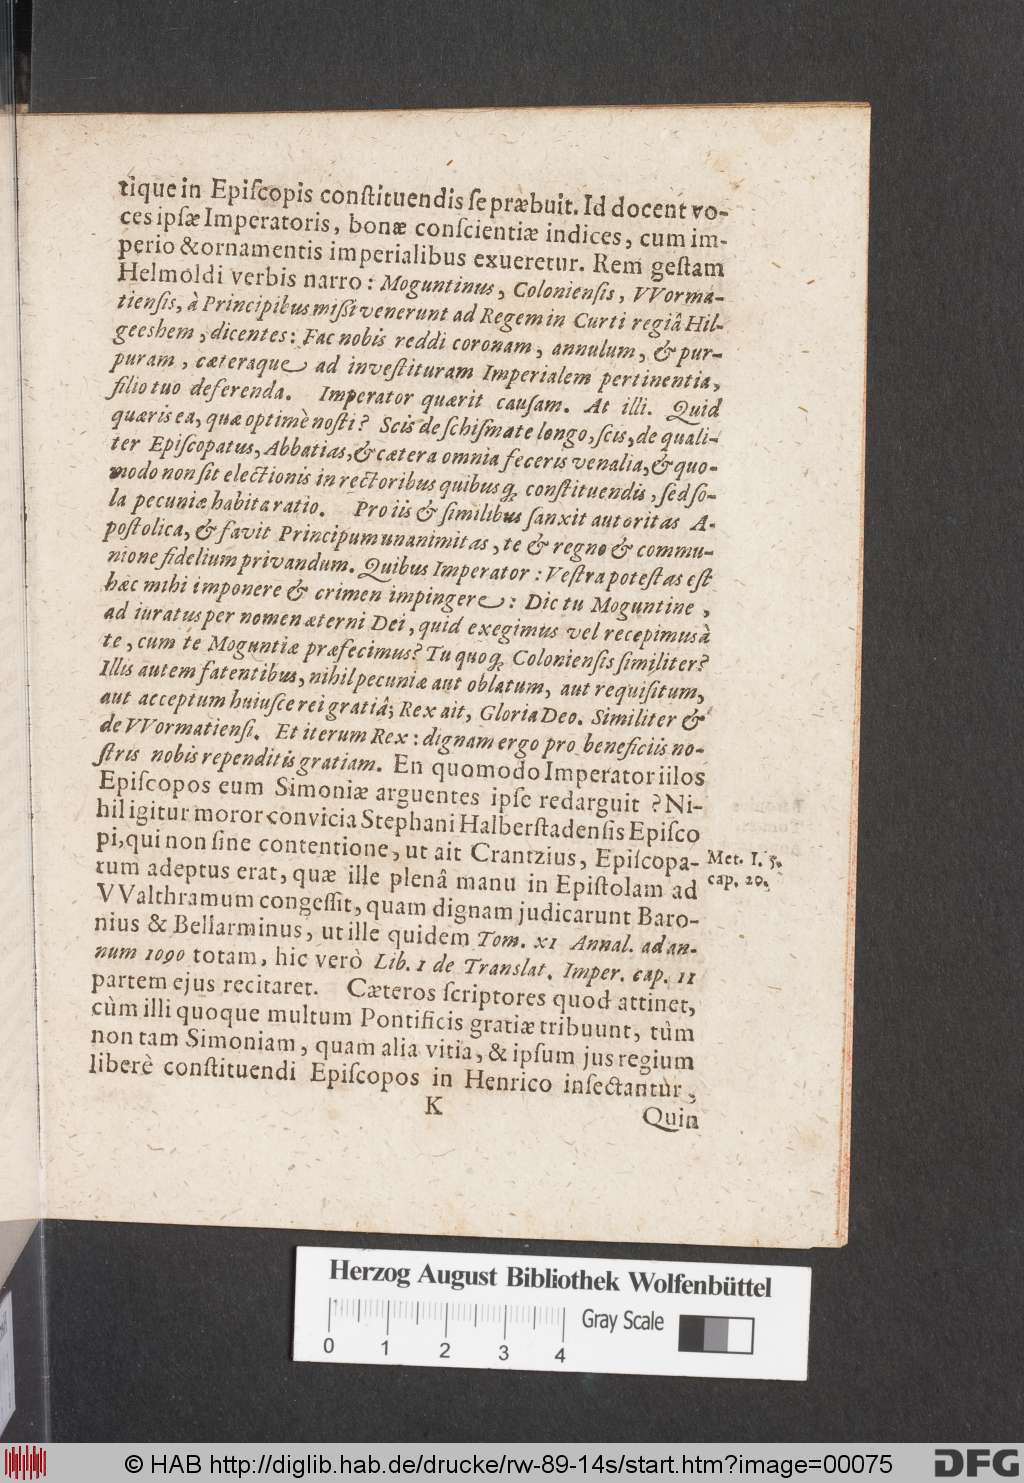 tique in Epiſcopis conſtituendis ſe præbuit. Id docent vo-
ces ipſæ Imperatoris, bonæ conſcientiæ indices, cum im-
perio & ornamentis imperialibus exueretur. Rem geſtam
Helmoldi verbis narro: Moguntinus, Colonienſis, VVorma-
tienſis, à Principibus miſſi venerunt ad Regem in Curti regiâ Hil-
geeshem, dicentes: Fac nobis reddi coronam, annulum, & pur-
puram, cæteraque ad inveſtituram Imperialem pertinentia,
filio tuo deferenda. Imperator quærit cauſam. At illi. Quid
quæris ea, quæ optimè noſti? Scis de ſchiſmate longo, ſcis, de quali-
ter Epiſcopatus, Abbatias, & cætera omnia feceris venalia, & quo-
modo non ſit electionis in rectoribus quibusq́; conſtituendis, ſed ſo-
la pecuniæ habita ratio. Pro iis & ſimilibus ſanxit autoritas A-
poſtolica, & favit Principum unanimitas, te & regno & commu-
nione fidelium privandum. Quibus Imperator: Veſtra poteſtas eſt
hæc mihi imponere & crimen impingere: Dic tu Moguntine,
ad iuratus per nomen æterni Dei, quid exegimus vel recepimus à
te, cum te Moguntiæ præfecimus? Tu quoq́; Colonienſis ſimiliter?
Illis autem fatentibus, nihil pecuniæ aut oblatum, aut requiſitum,
aut acceptum huiuſce rei gratiâ; Rex ait, Gloria Deo. Similiter &
de VVormatienſi. Et iterum Rex: dignam ergo pro beneficiis no-
ſtris nobis rependitis gratiam. En quomodo Imperator iilos
Epiſcopos eum Simoniæ arguentes ipſe redarguit? Ni-
hil igitur moror convicia Stephani Halberſtadenſis Epiſco
pi, qui non ſine contentione, ut ait Crantzius, Epiſcopa-
Met. l. 5.
tum adeptus erat, quæ ille plenâ manu in Epiſtolam ad
cap. 20.
VValthramum congeſſit, quam dignam judicarunt Baro-
nius & Bellarminus, ut ille quidem Tom. XI Annal. ad an-
num 1090 totam, hic verò Lib. 1 de Translat. Imper. cap. 11
partem ejus recitaret. Cæteros ſcriptores quod attinet,
cùm illi quoque multum Pontificis gratiæ tribuunt, tùm
non tam Simoniam, quam alia vitia, & ipſum jus regium
liberè conſtituendi Epiſcopos in Henrico inſectantùr,
K
Quin
Herzog August Bibliothek Wolfenbüttel
Gray Scale
0 1 2 3 4
© HAB http://diglib.hab.de/drucke/rw-89-14s/start.htm?image=00075
DFG